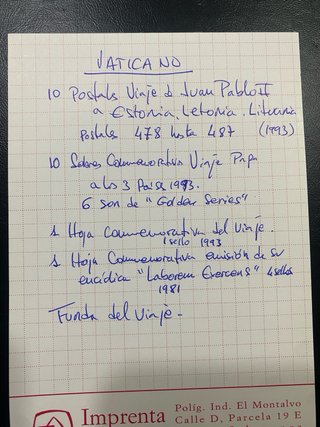 VATICANO
10 Postales Viaje d Juan Pablo II
a Estonia, Letonia, Lituania
Postales 478 hasta 487 (1993)
10 Sobres Conmemorativa Viaje Papa
a los 3 Paises 1993.
6 son de "Golden Series"
1 Hoja Conmemorativa del Viaje.
1 sello 1993
1 Hoja Conmemorativa emisión de su
encíclica "Laborem Exercens" 4 sellos
1981
Funda del Viaje -
Imprenta
Políg. Ind. El Montalvo
Calle D, Parcela 19 E